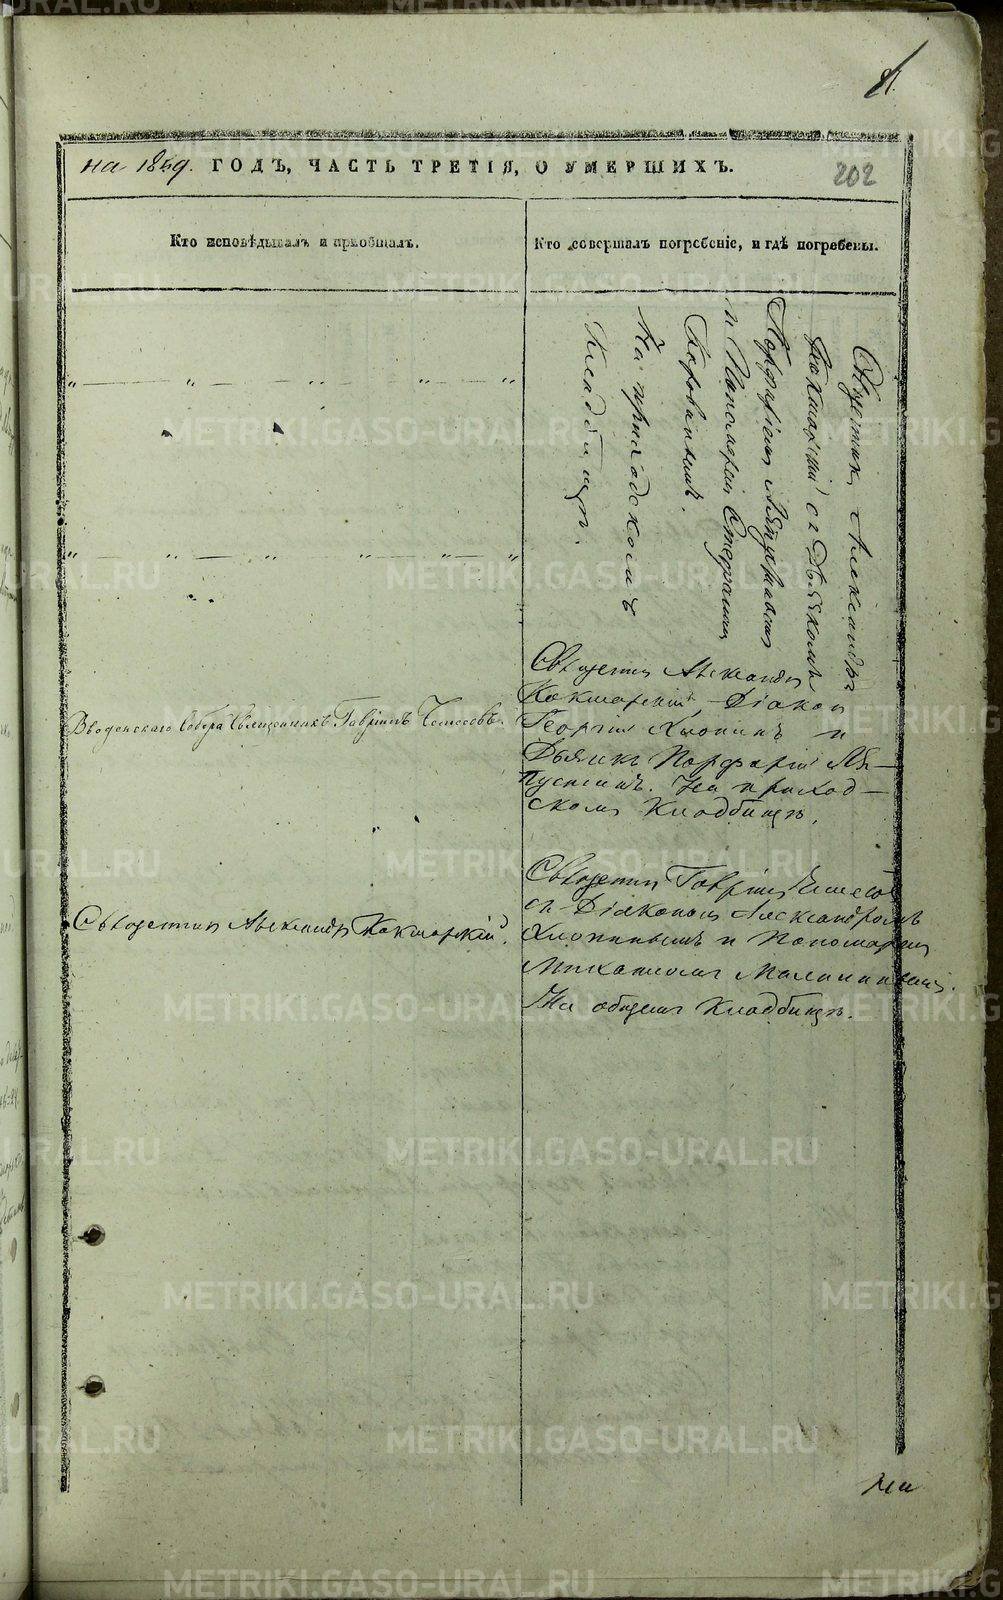 202
на 1859. ГОДЪ, ЧАСТЬ ТРЕТІЯ, О УМЕРШИХЪ.
Кто исповѣдывалъ и пріобщалъ.
Кто совершалъ погребеніе, и гдѣ погребены.
Священник Александръ
Кокшарскій съ Дьячкомъ
Порфиріемъ Ляпустинымъ
и Пономаремъ Стефаномъ
На приходскомъ
Кладбищѣ.
Введенскаго Собора Священникъ Гавріилъ
Священникъ Александръ
Кокшарскій, Діакон
Георгій Хлопинъ и
Дьячекъ Порфирій Ля-
пустинъ. На приход-
скомъ Кладбищѣ.
Священникъ Александръ Кокшарскій.
Священникъ Гавріилъ
съ Діакономъ Александромъ
Хлопинымъ и Пономаремъ
Михаиломъ
На общемъ Кладбищѣ.
METRIKI.GASO-URAL.RU